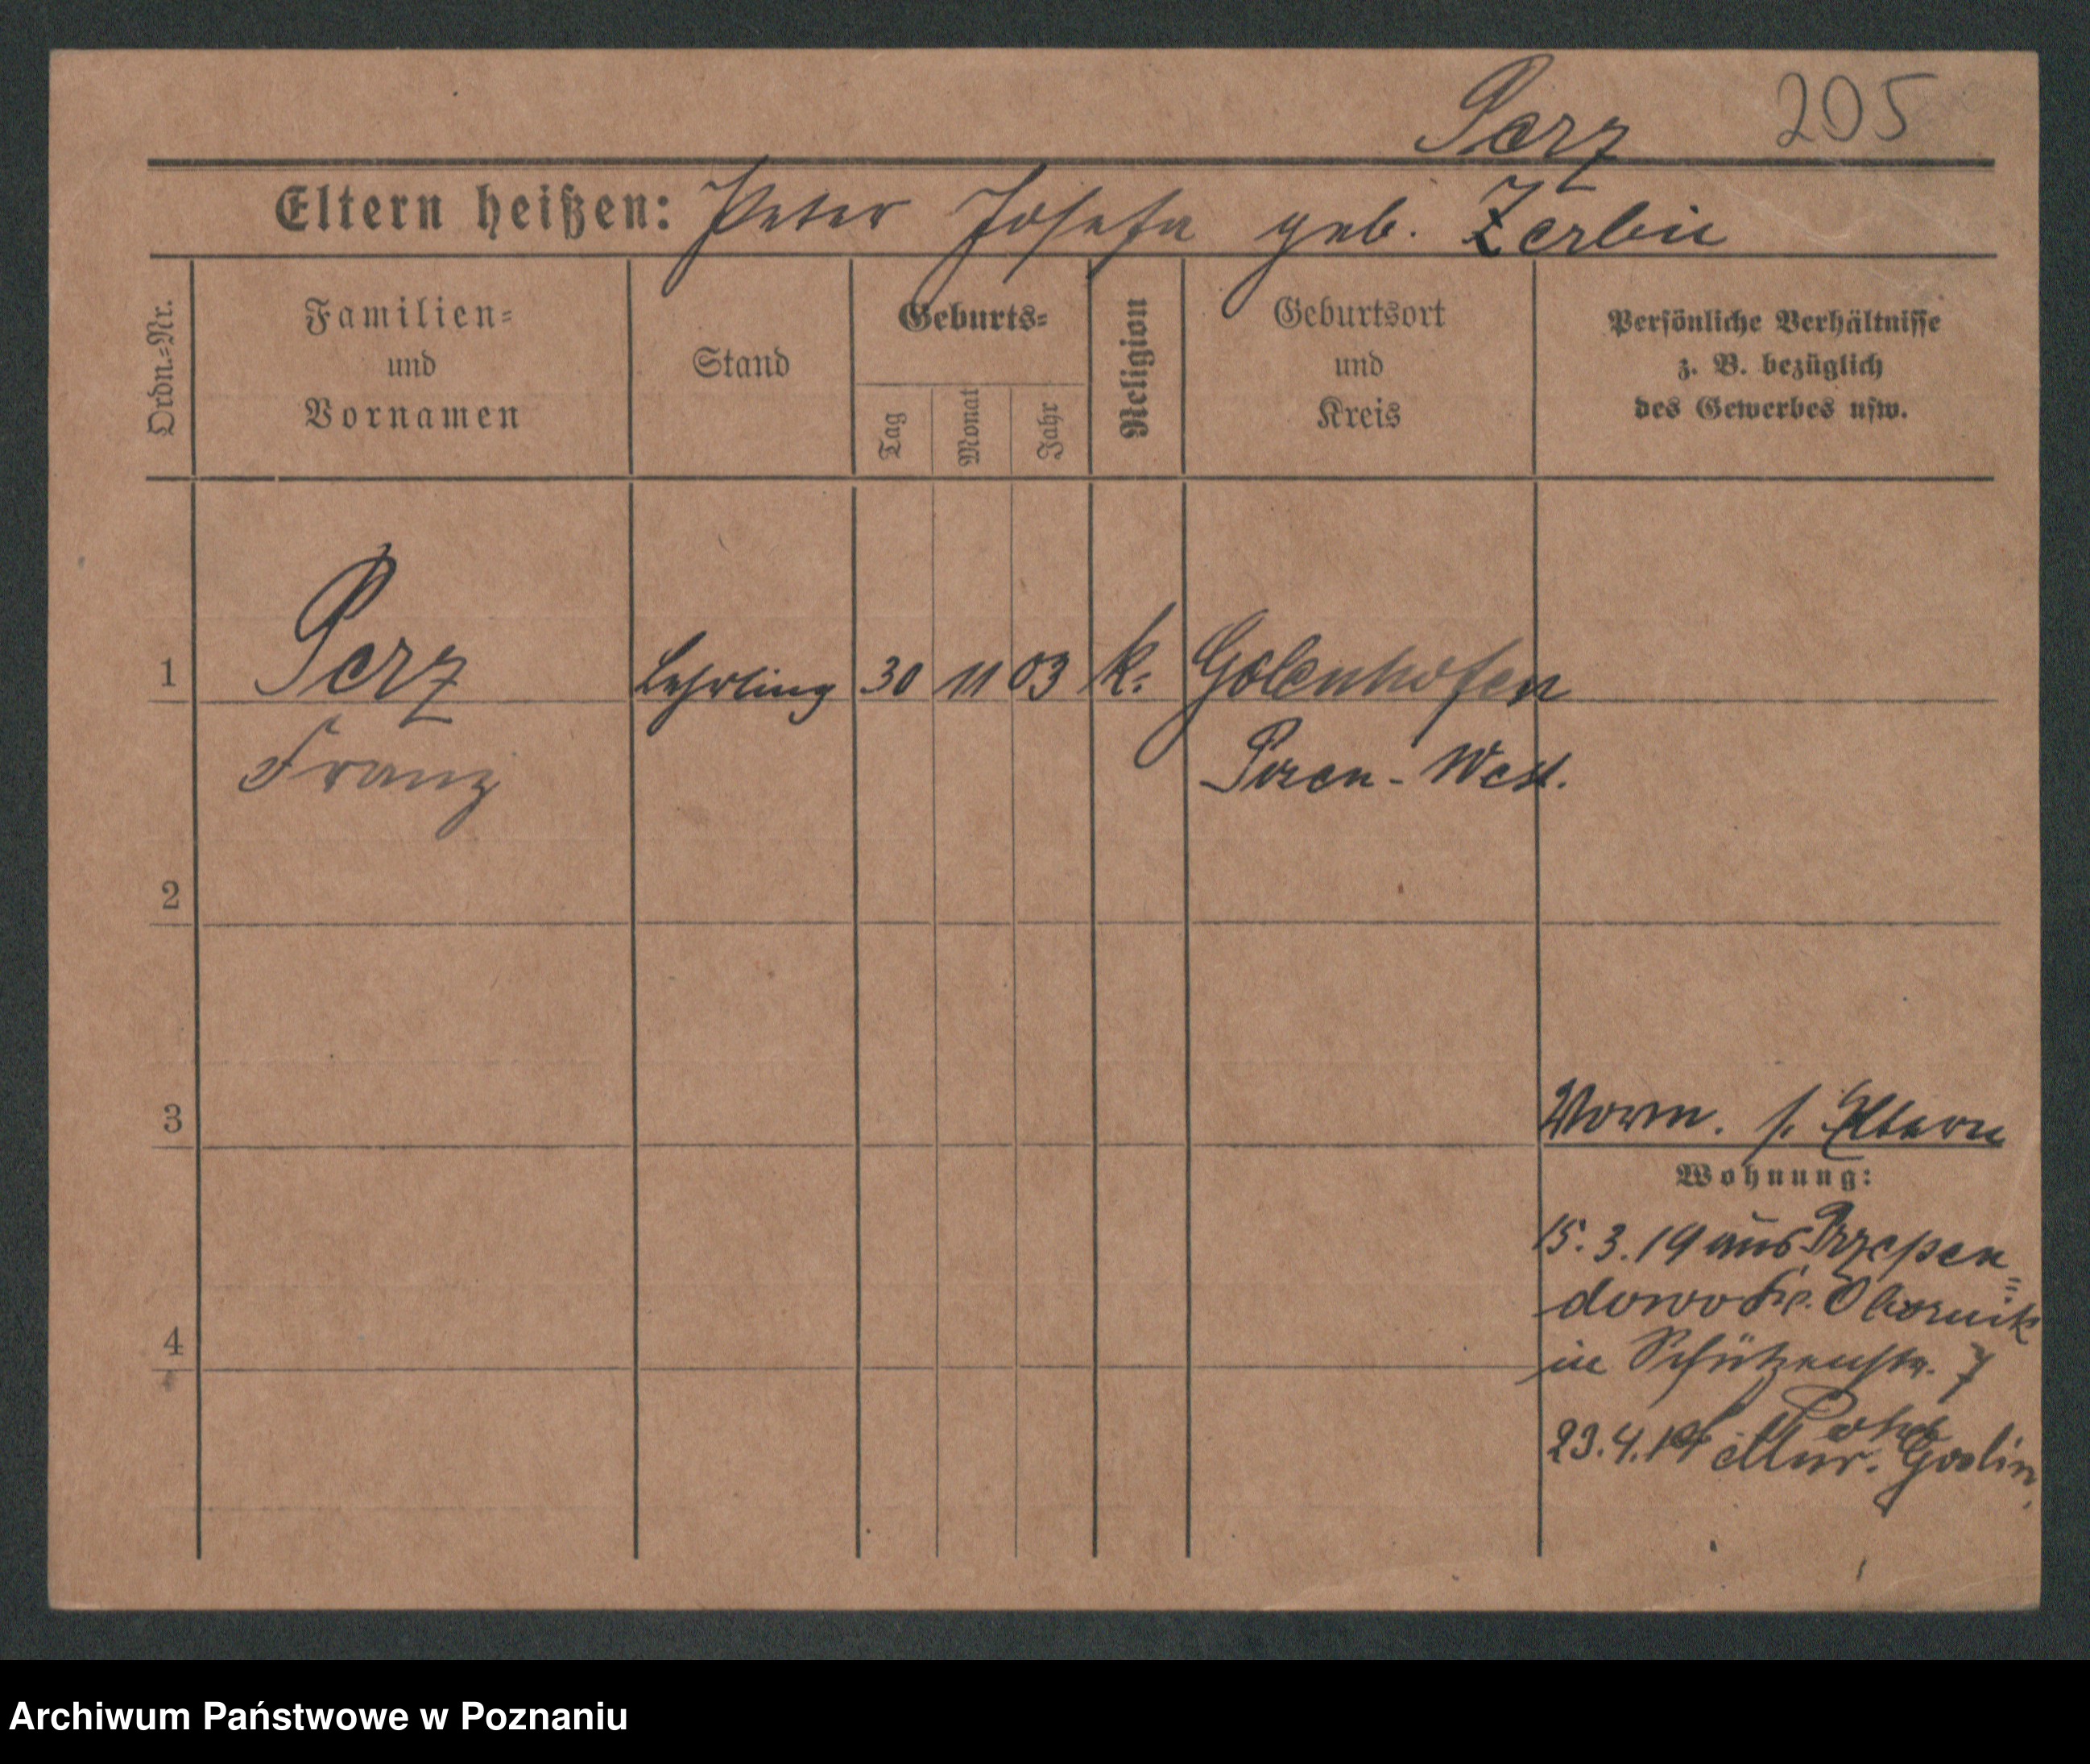 Perz 205
Eltern heißen: Peter Josefa geb. Zerbin
Ordn.-Nr.
Familien=
und
Vornamen
Stand
Geburts=
Tag
Monat
Jahr
Religion
Geburtsort
und
Kreis
Persönliche Verhältnisse
z. B. bezüglich
des Gewerbes usw.
1 Perz Lehrling 30 11 03 k. Golenhofen
Franz Posen-West.
2
3 Vorm. s. Eltern
Wohnung:
15.3.19 aus Przepen=
dowo Kr. Obornik
4
in Schützenstr. 7
23.4.19 Mur. Goslin.
Archiwum Państwowe w Poznaniu